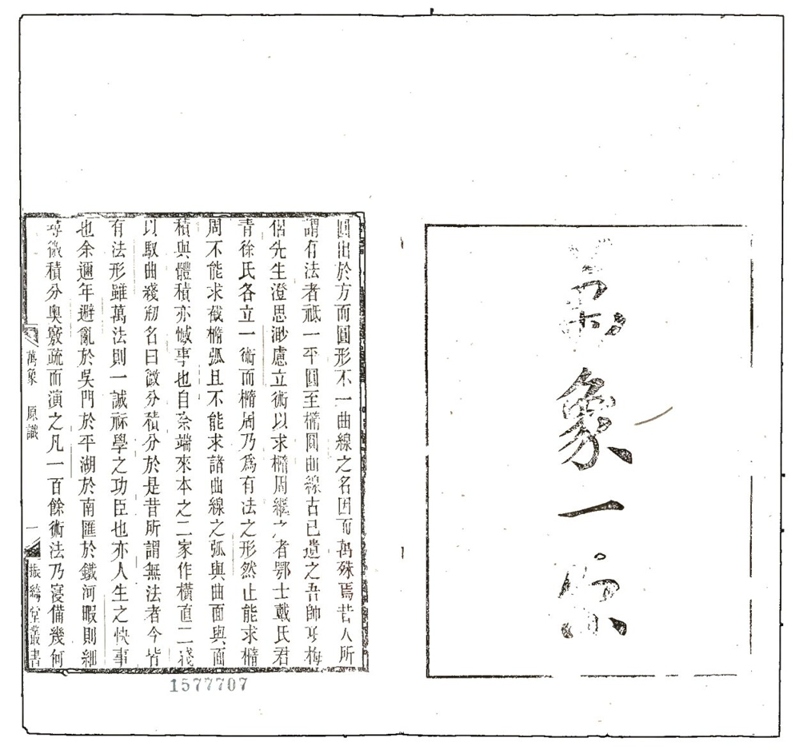 萬象一原
圓出於方而圓形不一曲線之名因而萬殊焉昔人所
謂有法者祗一平圓至橢圓曲線古已遺之吾師項梅
侶先生澄思渺慮立術以求橢周繼之者鄂士戴氏君
青徐氏各立一術而橢周乃爲有法之形然止能求橢
周不能求截橢弧且不能求諸曲線之弧與曲面與面
積與體積亦憾事也自奈端來本之二家作橫直二綫
以馭曲綫剏名曰微分積分於是昔所謂無法者今皆
有法形雖萬法則一誠祘學之功臣也亦人生之快事
也余邇年避亂於吳門於平湖於南匯於鐵河暇則細
尋微積分奧竅疏而演之凡一百餘術法乃寖備幾何
萬象 原識 一 振綺堂叢書
1577707